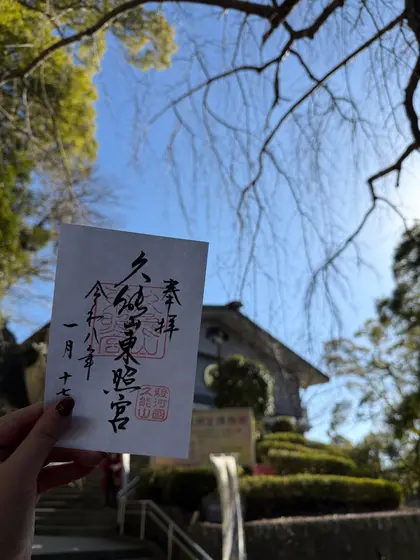 奉拝
久能山東照宮
令和八年
一月十七
駿河国
久能山